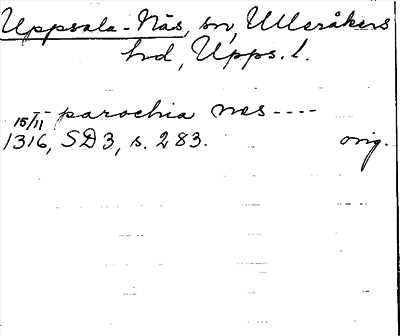 Uppsala-Näs, sn, Ulleråkers
hd, Upps. l.
15/11 parochia nes ----
1316, SD3, s. 283. orig.